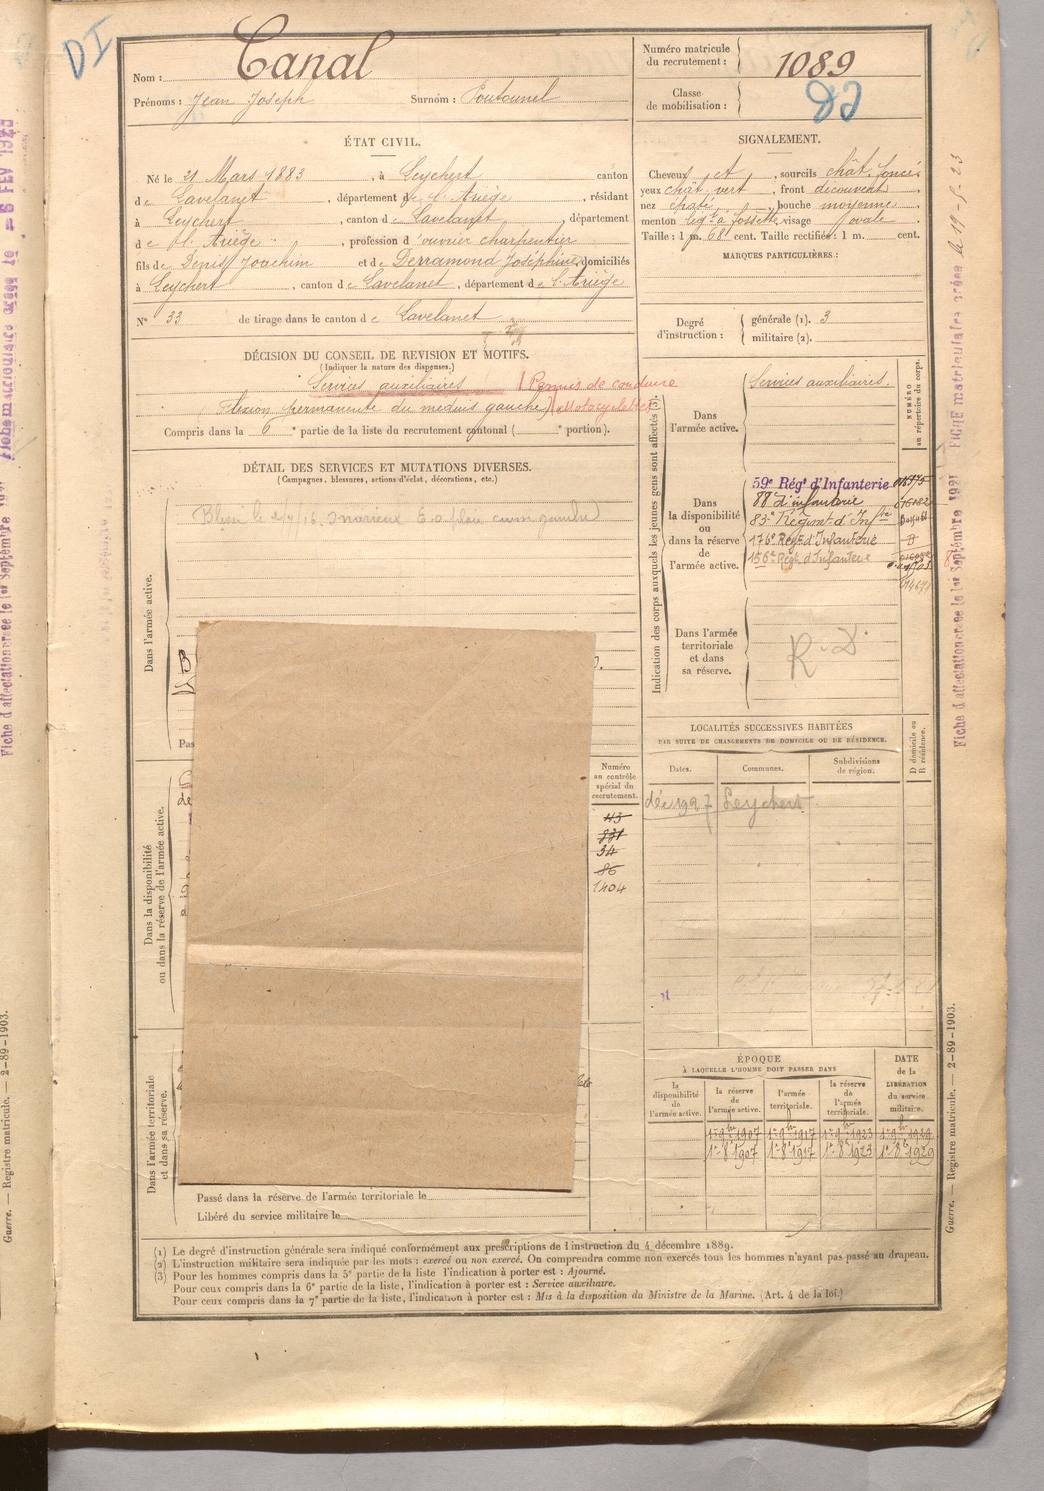 DI
Nom : Canal
Prénoms : Jean Joseph Surnom :
Numéro matricule du recrutement : 1089
Classe de mobilisation :
ÉTAT CIVIL.
Né le 21 Mars 1883, à Leychert canton
de Lavelanet, département de l'Ariège, résidant
à Leychert, canton de Lavelanet, département
de l'Ariège, profession d'ouvrier charpentier
fils de Denis Joachim et de Derramond Joséphine, domiciliés
à Leychert, canton de Lavelanet, département de l'Ariège
N° 33 de tirage dans le canton de Lavelanet
SIGNALEMENT.
Cheveux et, sourcils chât. foncés
yeux chât. vert, front découvert
nez, bouche moyenne
menton à fossette visage ovale
Taille : 1 m. 68 cent. Taille rectifiée : 1 m. cent.
MARQUES PARTICULIÈRES :
Degré d'instruction : générale (1). 3
militaire (2).
DÉCISION DU CONSEIL DE REVISION ET MOTIFS.
(Indiquer la nature des dispenses.)
Services auxiliaires Permis de conduire
(flexion permanente du médius gauche) Motocyclettes
Compris dans la 6e partie de la liste du recrutement cantonal ( e portion).
DÉTAIL DES SERVICES ET MUTATIONS DIVERSES.
(Campagnes, blessures, actions d'éclat, décorations, etc.)
Blessé le
Dans l'armée active.
Pas
Dans la disponibilité ou dans la réserve de l'armée active.
Dans l'armée territoriale et dans sa réserve.
Numéro au contrôle spécial du recrutement.
43
831
34
86
1404
Passé dans la réserve de l'armée territoriale le
Libéré du service militaire le
Indication des corps auxquels les jeunes gens sont affectés (3).
NUMÉRO au répertoire du corps.
Dans l'armée active.
Services auxiliaires.
Dans la disponibilité ou dans la réserve de l'armée active.
59e Régt d'Infanterie
88e d'infanterie
83e Régiment d'Infrie
176e Régt d'Infanterie
156e Régt d'Infanterie
Dans l'armée territoriale et dans sa réserve.
R. D.
LOCALITÉS SUCCESSIVES HABITÉES
PAR SUITE DE CHANGEMENTS DE DOMICILE OU DE RÉSIDENCE.
Dates. Communes. Subdivisions de région. D domicile ou R résidence.
déc 1927 Leychert
ÉPOQUE
À LAQUELLE L'HOMME DOIT PASSER DANS
la disponibilité de l'armée active.
la réserve de l'armée active.
l'armée territoriale.
la réserve de l'armée territoriale.
DATE de la LIBÉRATION du service militaire.
1er 9bre 1907 1er 9bre 1917 1er 9bre 1923 1er 9bre 1929
1er 8bre 1907 1er 8bre 1917 1er 8bre 1923 1er 8bre 1929
(1) Le degré d'instruction générale sera indiqué conformément aux prescriptions de l'instruction du 4 décembre 1889.
(2) L'instruction militaire sera indiquée par les mots : exercé ou non exercé. On comprendra comme non exercés tous les hommes n'ayant pas passé au drapeau.
(3) Pour les hommes compris dans la 5e partie de la liste l'indication à porter est : Ajourné.
Pour ceux compris dans la 6e partie de la liste, l'indication à porter est : Service auxiliaire.
Pour ceux compris dans la 7e partie de la liste, l'indication à porter est : Mis à la disposition du Ministre de la Marine. (Art. 4 de la loi.)
Fiche d'affectation créée le 1er Septembre 1921 FICHE matriculaire créée le 19-5-23
Guerre. — Registre matricule. — 2-89-1903.
Fiche d'affectation créée le 1er Septembre 1921 Fiche matriculaire créée le -6 FEV 1923
Guerre. — Registre matricule. — 2-89-1903.